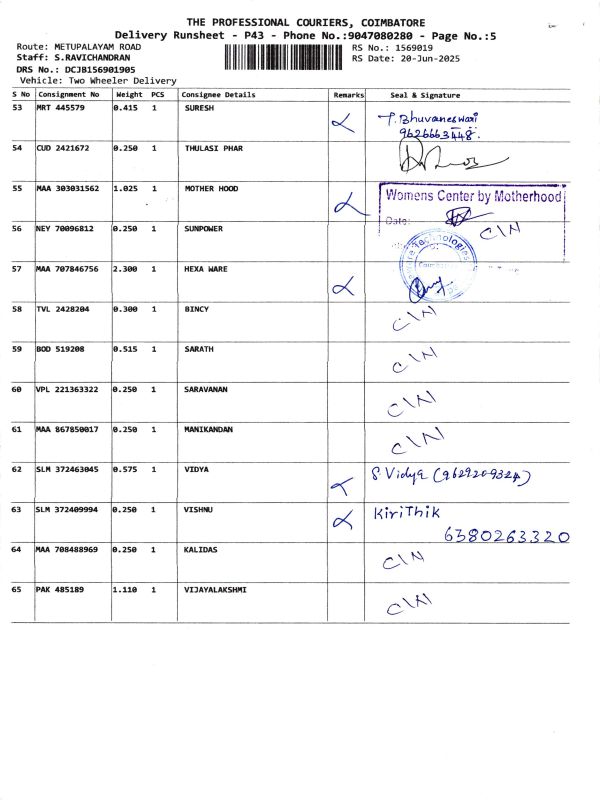 THE PROFESSIONAL COURIERS, COIMBATORE
Delivery Runsheet - P43 - Phone No.:9047080280 - Page No.:5
Route: METUPALAYAM ROAD
RS No.: 1569019
Staff: S.RAVICHANDRAN
RS Date: 20-Jun-2025
DRS No.: DCJB156901905
Vehicle: Two Wheeler Delivery
S No Consignment No Weight PCS Consignee Details Remarks Seal & Signature
53 MRT 445579 0.415 1 SURESH
T. Bhuvaneswari
9626663448.
54 CUD 2421672 0.250 1 THULASI PHAR
55 MAA 303031562 1.025 1 MOTHER HOOD
Womens Center by Motherhood
Date:
56 NEY 70096812 0.250 1 SUNPOWER C/N
57 MAA 707846756 2.300 1 HEXA WARE
Technologies
58 TVL 2428204 0.300 1 BINCY C/N
59 BOD 519208 0.515 1 SARATH C/N
60 VPL 221363322 0.250 1 SARAVANAN C/N
61 MAA 867850017 0.250 1 MANIKANDAN C/N
62 SLM 372463045 0.575 1 VIDYA S. Vidya (9629209324)
63 SLM 372409994 0.250 1 VISHNU KiriThik
6380263320
64 MAA 708488969 0.250 1 KALIDAS C/N
65 PAK 485189 1.110 1 VIJAYALAKSHMI C/N